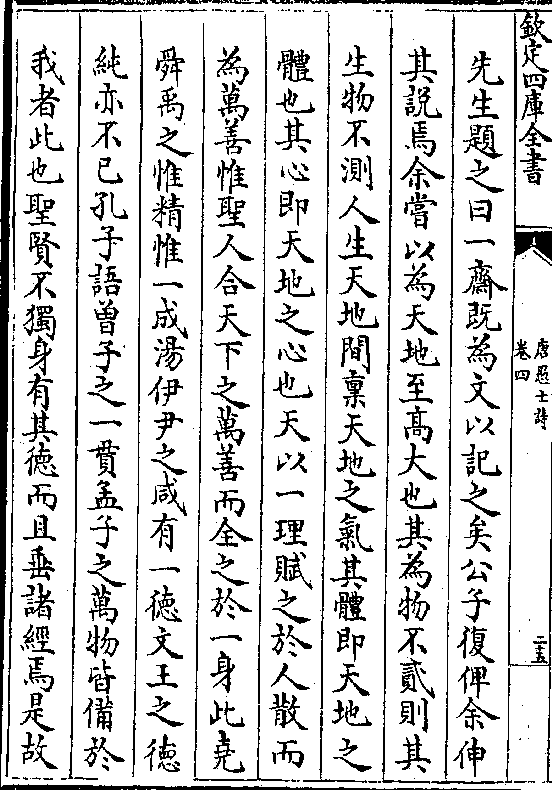 欽定四庫全書
唐愚士詩
卷四
二十五
先生題之曰一齋既為文以記之矣公子復俾余伸
其說焉余嘗以為天地至高大也其為物不貳則其
生物不測人生天地間禀天地之氣其體即天地之
體也其心即天地之心也天以一理賦之於人散而
為萬善惟聖人合天下之萬善而全之於一身此堯
舜禹之惟精惟一成湯伊尹之咸有一徳文王之徳
純亦不已孔子語曽子之一貫孟子之萬物皆備於
我者此也聖賢不獨身有其徳而且垂諸經焉是故